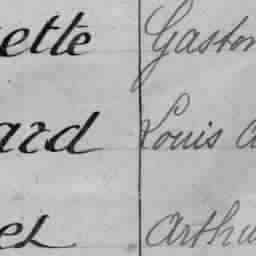 ette Gaston
ard Louis a
et Arthu